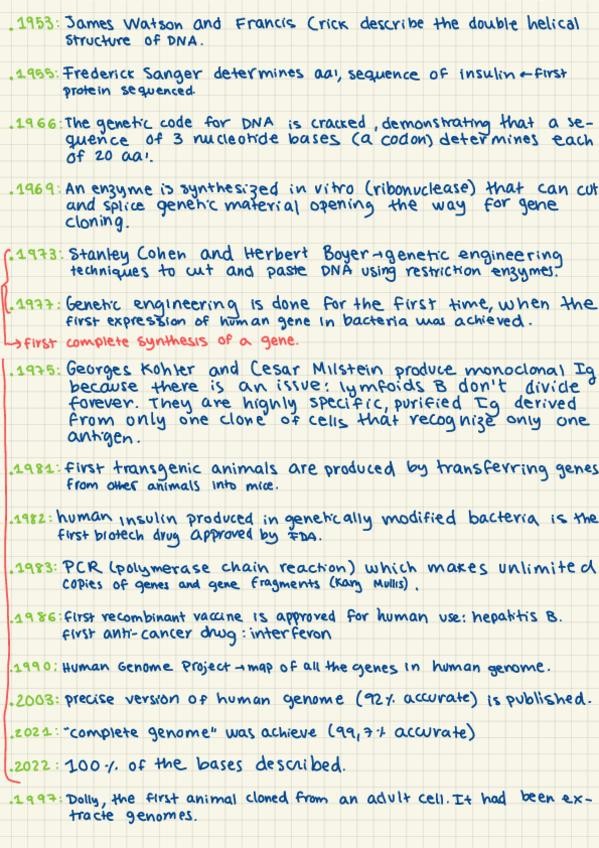 .1953: James Watson and Francis Crick describe the double helical
structure of DNA.
.1955: Frederick Sanger determines aa', sequence of insulin ← first
protein sequenced.
.1966: The genetic code for DNA is cracked, demonstrating that a se-
quence of 3 nucleotide bases (a codon) determines each
of 20 aa'.
.1969: An enzyme is synthesized in vitro (ribonuclease) that can cut
and splice genetic material opening the way for gene
cloning.
.1973: Stanley Cohen and Herbert Boyer → genetic engineering
techniques to cut and paste DNA using restriction enzymes.
.1977: Genetic engineering is done for the first time, when the
first expression of human gene in bacteria was achieved.
→ first complete synthesis of a gene.
.1975: Georges Kohler and Cesar Milstein produce monoclonal Ig
because there is an issue: lymfoids B don't divide
forever. They are highly specific, purified Ig derived
from only one clone of cells that recognize only one
antigen.
.1981: first transgenic animals are produced by transferring genes
from other animals into mice.
.1982: human insulin produced in genetically modified bacteria is the
first biotech drug approved by FDA.
.1983: PCR (polymerase chain reaction) which makes unlimited
copies of genes and gene fragments (Kary Mullis).
.1986: first recombinant vaccine is approved for human use: hepatitis B.
first anti-cancer drug: interferon
.1990: Human Genome Project → map of all the genes in human genome.
.2003: precise version of human genome (92% accurate) is published.
.2021: "complete genome" was achieve (99,7% accurate)
.2022: 100% of the bases described.
.1997: Dolly, the first animal cloned from an adult cell. It had been ex-
tracte genomes.